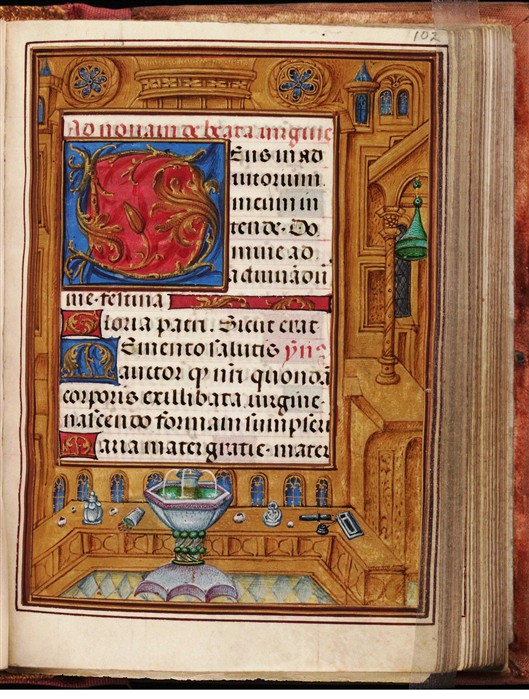 102
Ad nonam de beata virgine
Deus in ad
iutorium
meum in
tende. Do
mine ad
adiuuādū
me festina
Gloria patri. Sicut erat
Memento salutis ymꝰ
auctor qꝫ nr̄i quondā
corporis ex illibata virgine
nascendo formam sumpseri
Maria mater gratie. mater